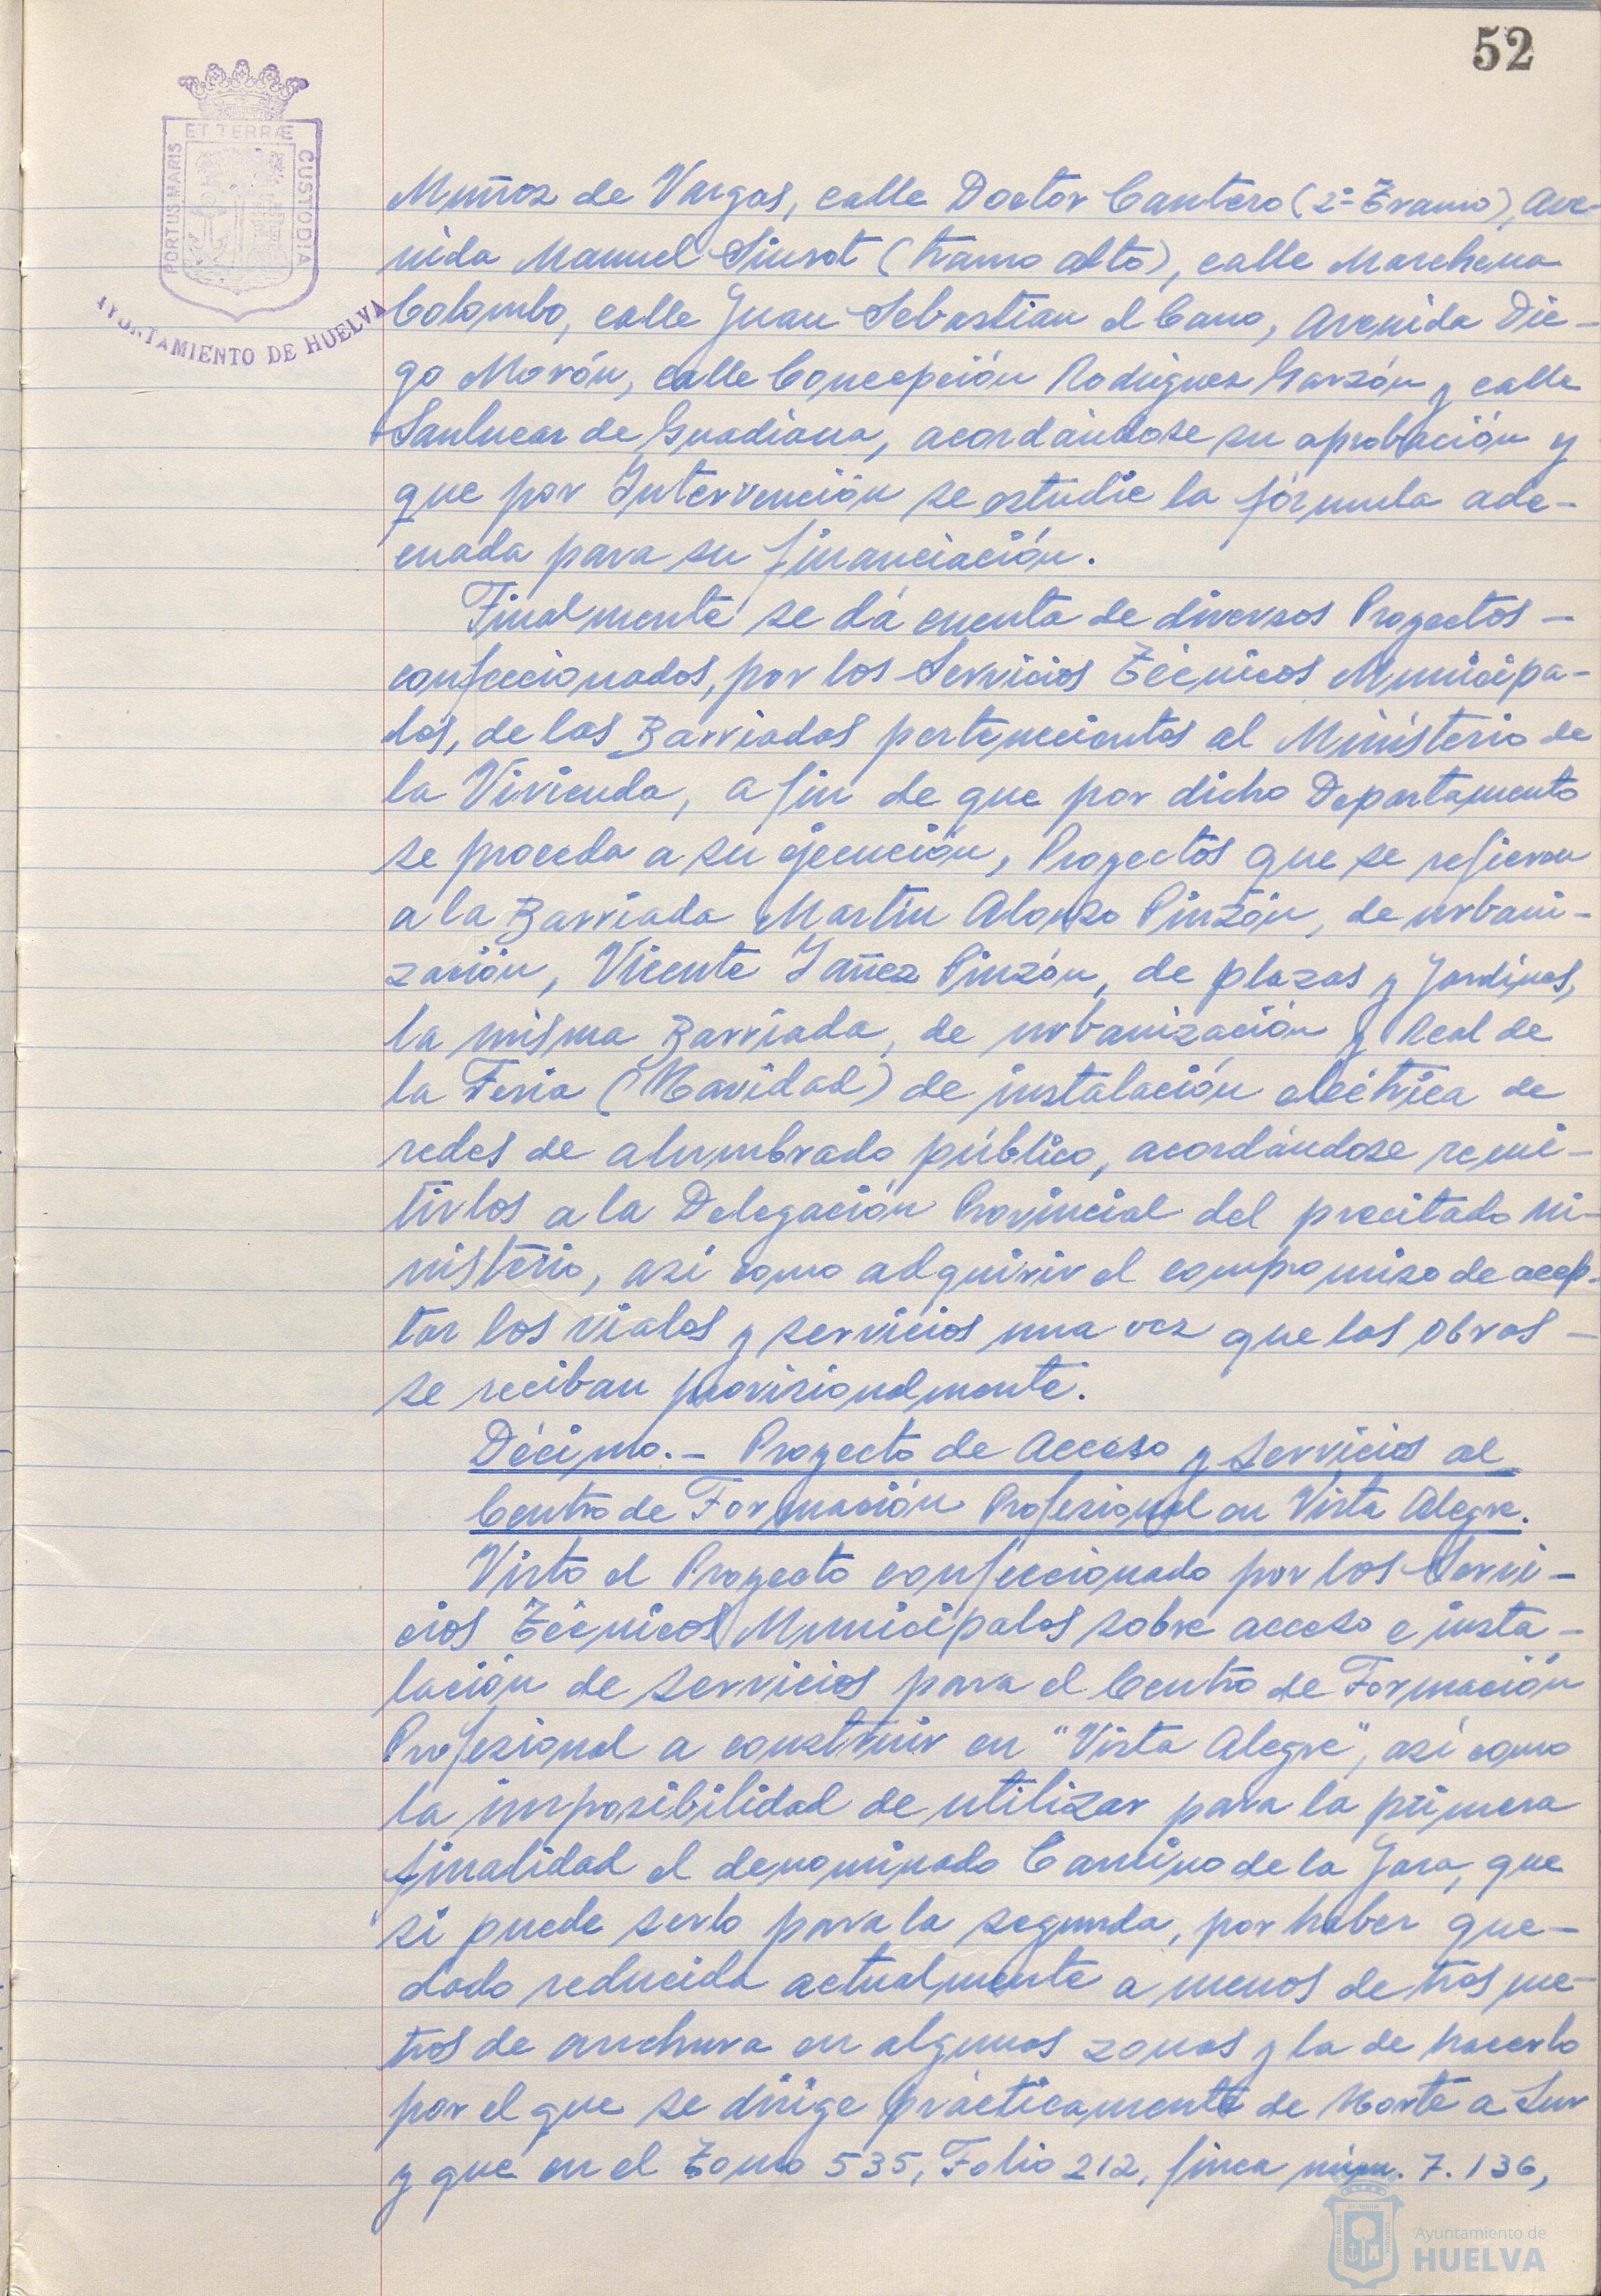 52
ET TERRÆ
PORTUS MARIS
CUSTODIA
AYUNTAMIENTO DE HUELVA
Muñoz de Vargas, calle Doctor Cantero (2º Tramo), Ave-
nida Manuel Siurot (tramo alto), calle Marchena
Colombo, calle Juan Sebastian el Cano, Avenida Die-
go Morón, calle Concepción Rodriguez Garzón y calle
Sanlucar de Guadiana, acordándose su aprobación y
que por Intervención se estudie la fórmula ade-
cuada para su financiación.
Finalmente se dá cuenta de diversos Proyectos -
confeccionados, por los Servicios Técnicos Municipa-
les, de las Barriadas pertenecientes al Ministerio de
la Vivienda, a fin de que por dicho Departamento
se proceda a su ejecución, Proyectos que se refieren
a la Barriada Martin Alonso Pinzón, de urbani-
zación, Vicente Yañez Pinzón, de plazas y Jardines,
la misma Barriada, de urbanización y Real de
la Feria (Navidad) de instalación eléctrica de
redes de alumbrado público, acordándose remi-
tirlos a la Delegación Provincial del precitado Mi-
nisterio, asi como adquirir el compromiso de acep-
tar los viales y servicios una vez que las obras -
se reciban provisionalmente.
Décimo.- Proyecto de Acceso y Servicios al
Centro de Formación Profesional en Vista Alegre.
Visto el Proyecto confeccionado por los Servi-
cios Técnicos Municipales sobre acceso e insta-
lación de servicios para el Centro de Formación
Profesional a construir en "Vista Alegre", así como
la imposibilidad de utilizar para la primera
finalidad el denominado Camino de la Jara, que
si puede serlo para la segunda, por haber que-
dado reducida actualmente a menos de tres me-
tros de anchura en algunas zonas y la de hacerlo
por el que se dirige prácticamente de Norte a Sur
y que en el Tomo 535, Folio 212, finca núm. 7.136,
Ayuntamiento de
HUELVA